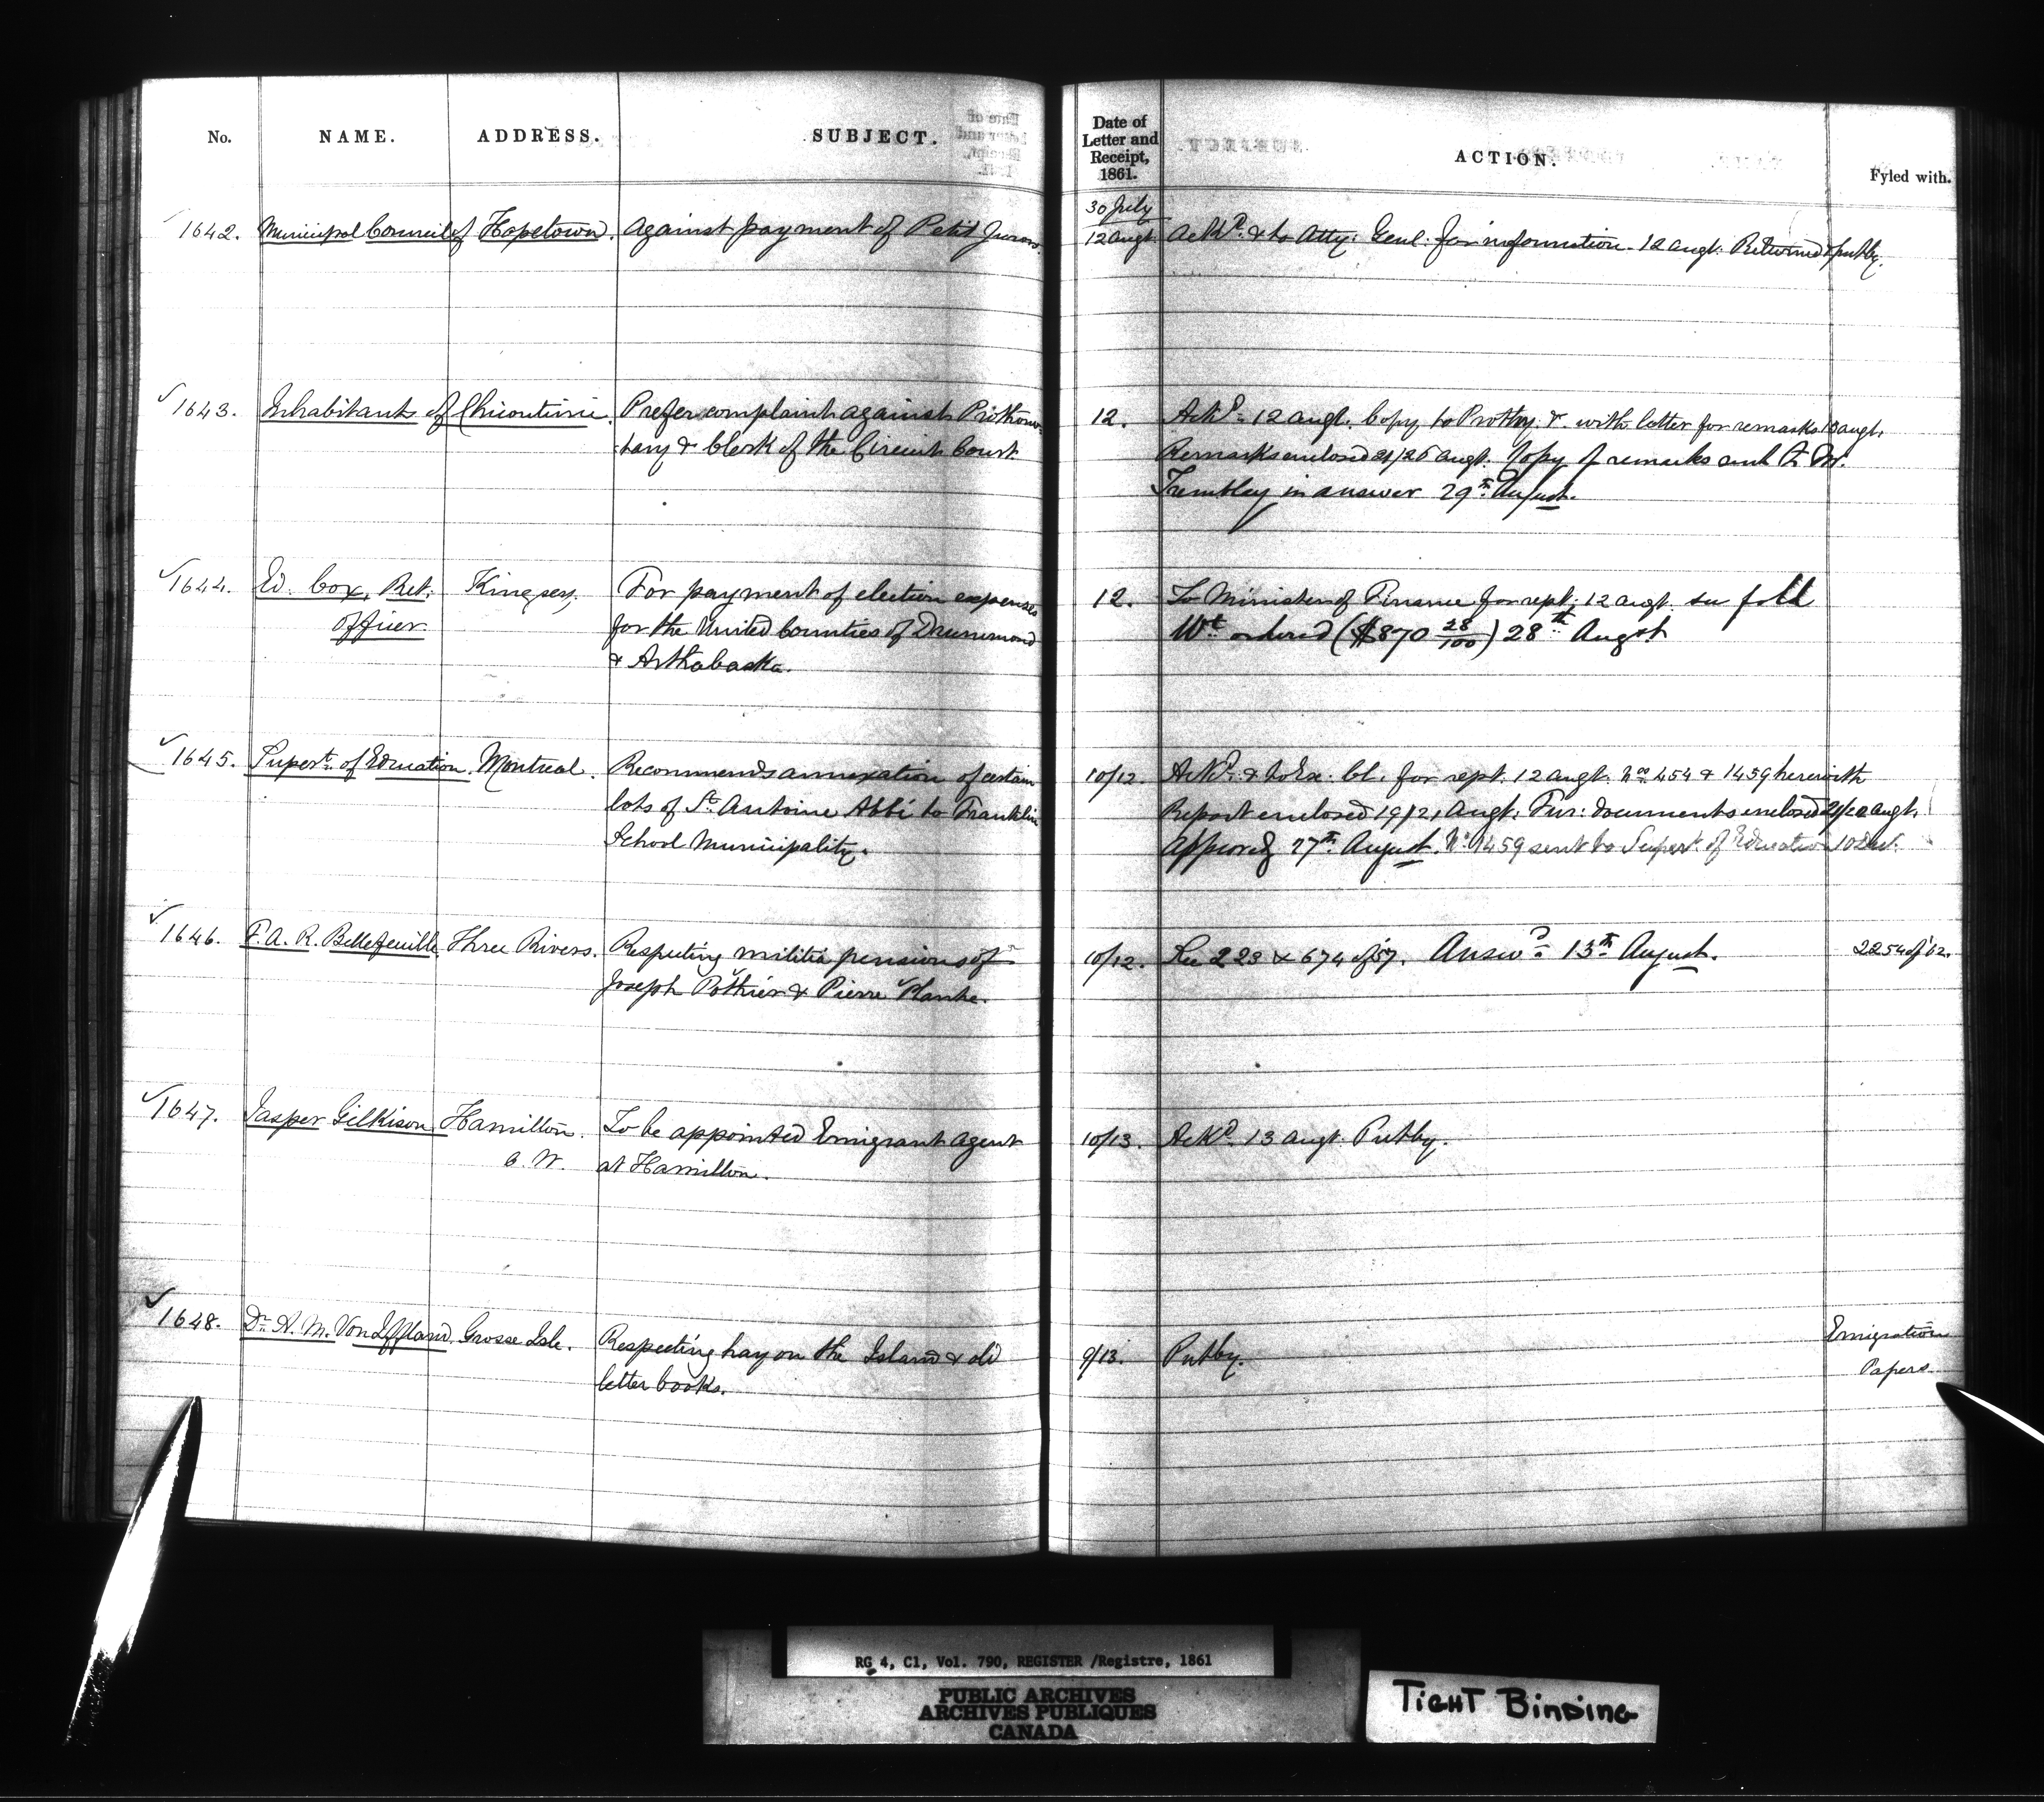 No. NAME. ADDRESS. SUBJECT. Date of Letter and Receipt, 1861. ACTION. Fyled with.
1642. Municipal Council of Hopetown. Against payment of Petit Jurors. 30 July / 12 Augt. Ackd. & to Atty. Genl. for information. 12 Augt. Returned & putby.
✓ 1643. Inhabitants of Chicoutimi. Prefer complaint against Prothono- 12. Ackd. 12 Augt. Copy to Prothy. &c. with letter for remarks 13 Augt.
tary & Clerk of the Circuit Court. Remarks enclosed 21/26 Augt. Copy of remarks sent to
Trembley in answer 29th August.
✓ 1644. Ed. Cox, Ret. Kingsey. For payment of election expenses 12. To Minister of Finance for rept. 12 Augt.
Officer. for the United Counties of Drummond Wt. ordered ($870 28/100) 28th Augst
& Arthabaska.
✓ 1645. Supert. of Education. Montreal. Recommends annexation of certain 10/12. Ackd. & to Ex. Cl. for rept. 12 Augt. Nos. 454 & 1459 herewith
lots of St. Antoine Abbé to Franklin Report enclosed 19/21 Augt. Fur: documents enclosed Augt.
School Municipality. Approved 27th August. No. 1459 sent to Supert. of Education 10
✓ 1646. F. A. R. Bellefeuille. Three Rivers. Respecting militia pensions of 10/12. See 223 & 674 of 57. Answd. 13th August. 2254 of '62.
Joseph Pothier & Pierre Plante.
✓ 1647. Jasper Gilkison Hamilton. To be appointed Emigrant Agent 10/13. Ackd. 13 Augt. Putby.
C. W. at Hamilton.
✓ 1648. Dr. A. M. Von Iffland. Grosse Isle. Respecting hay on the Island & old 9/13. Putby. Emigration
letter books. Papers.
RG 4, C1, Vol. 790, REGISTER /Registre, 1861
PUBLIC ARCHIVES
ARCHIVES PUBLIQUES
CANADA
TIGHT BINDING